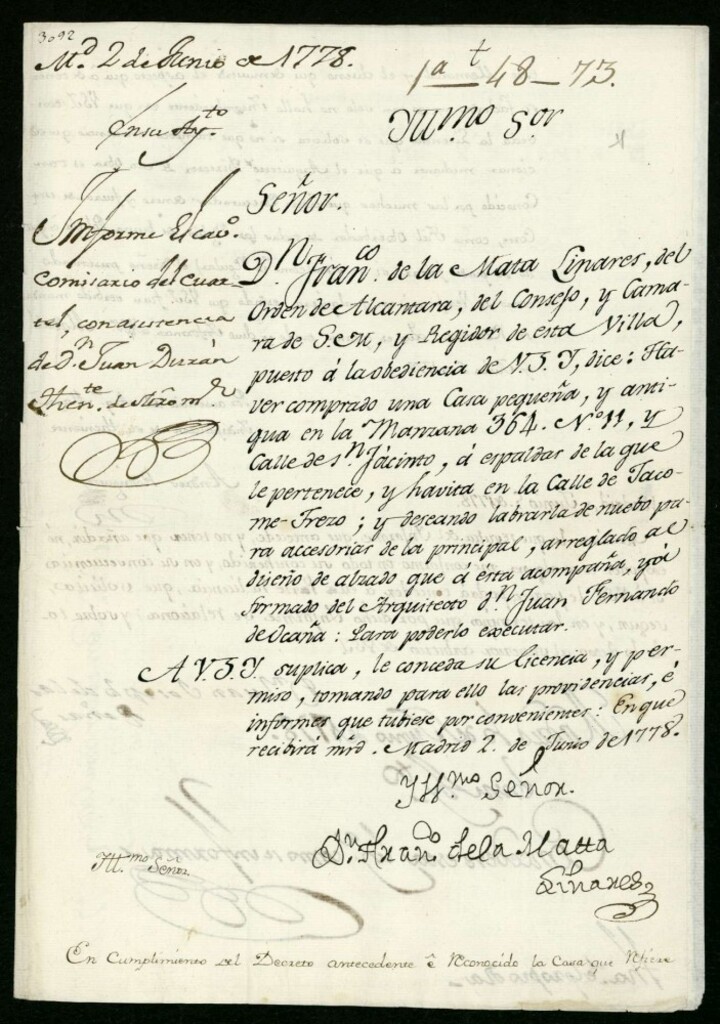 3092
Md. 2 de Junio de 1778.
1a t 48-73.
En su Ayto.
Yllmo. Sor
Ynforme El cavo.
Comisario del Cuar-
tel, con asistencia
de Dn. Juan Durán
Thente. de Mro mr.
Señor.
Dn. Franco. de la Mata Linares, del
Orden de Alcantara, del Consejo, y Cama-
ra de S.M, y Regidor de esta Villa,
puesto á la obediencia de V.S.Y, dice: Ha-
ver comprado una Casa pequeña, y anti-
qua en la Manzana 364. Nº. 11, y
Calle de Sn. Jácinto, á espaldas de la que
le pertenece, y havita en la Calle de Taco-
me-Trezo; y deseando labrarla de nuebo pa-
ra accesorias de la principal, arreglado al
diseño de alzado que á ésta acompaña, yá
formado del Arquitecto dn. Juan Fernando
de Ocaña: Para poderlo executar.
A V.S.Y suplica, le conceda su licencia, y per-
miso, tomando para ello las providencias, é
informes que tubiese por convenientes: En que
recibirá mrd. Madrid 2. de Junio de 1778.
Yllmo. Señor.
Dn. Franco. de la Matta
Linares
Yllmo. Señor
En Cumplimiento del Decreto antecedente é Reconocido la Casa que Refiere